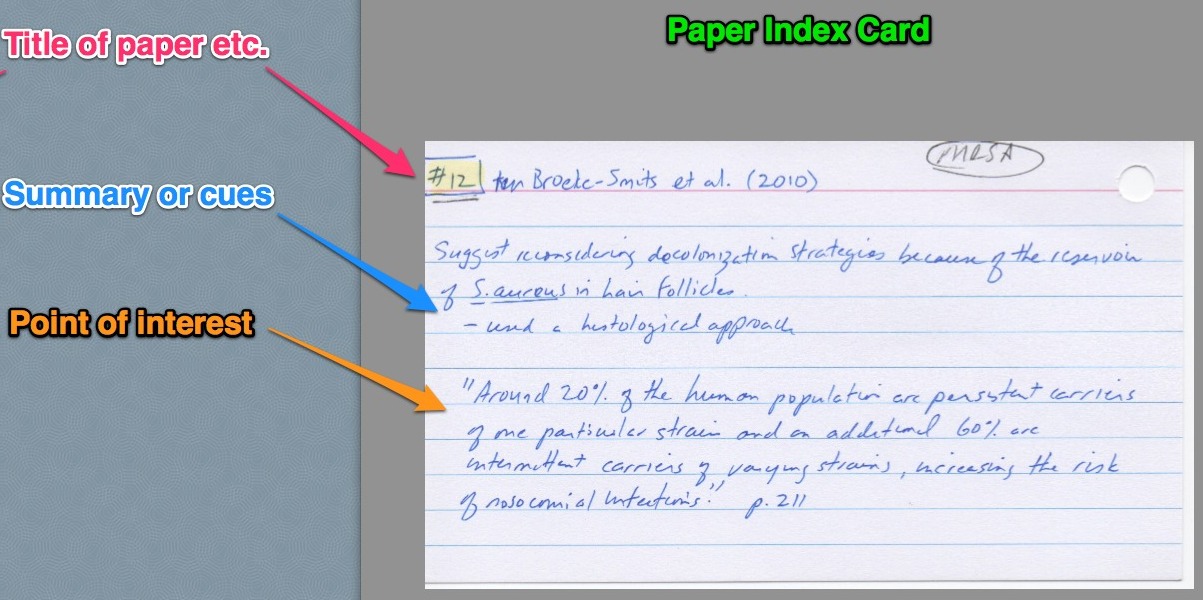 Title of paper etc.
Paper Index Card
MRSA
#12 ten Broeke-Smits et al. (2010)
Summary or cues
Suggest reconsidering decolonization strategies because of the reservoir
of S. aureus in hair follicles.
- used a histological approach
Point of interest
"Around 20% of the human population are persistent carriers
of one particular strain and an additional 60% are
intermittent carriers of varying strains, increasing the risk
of nosocomial infections." p. 211